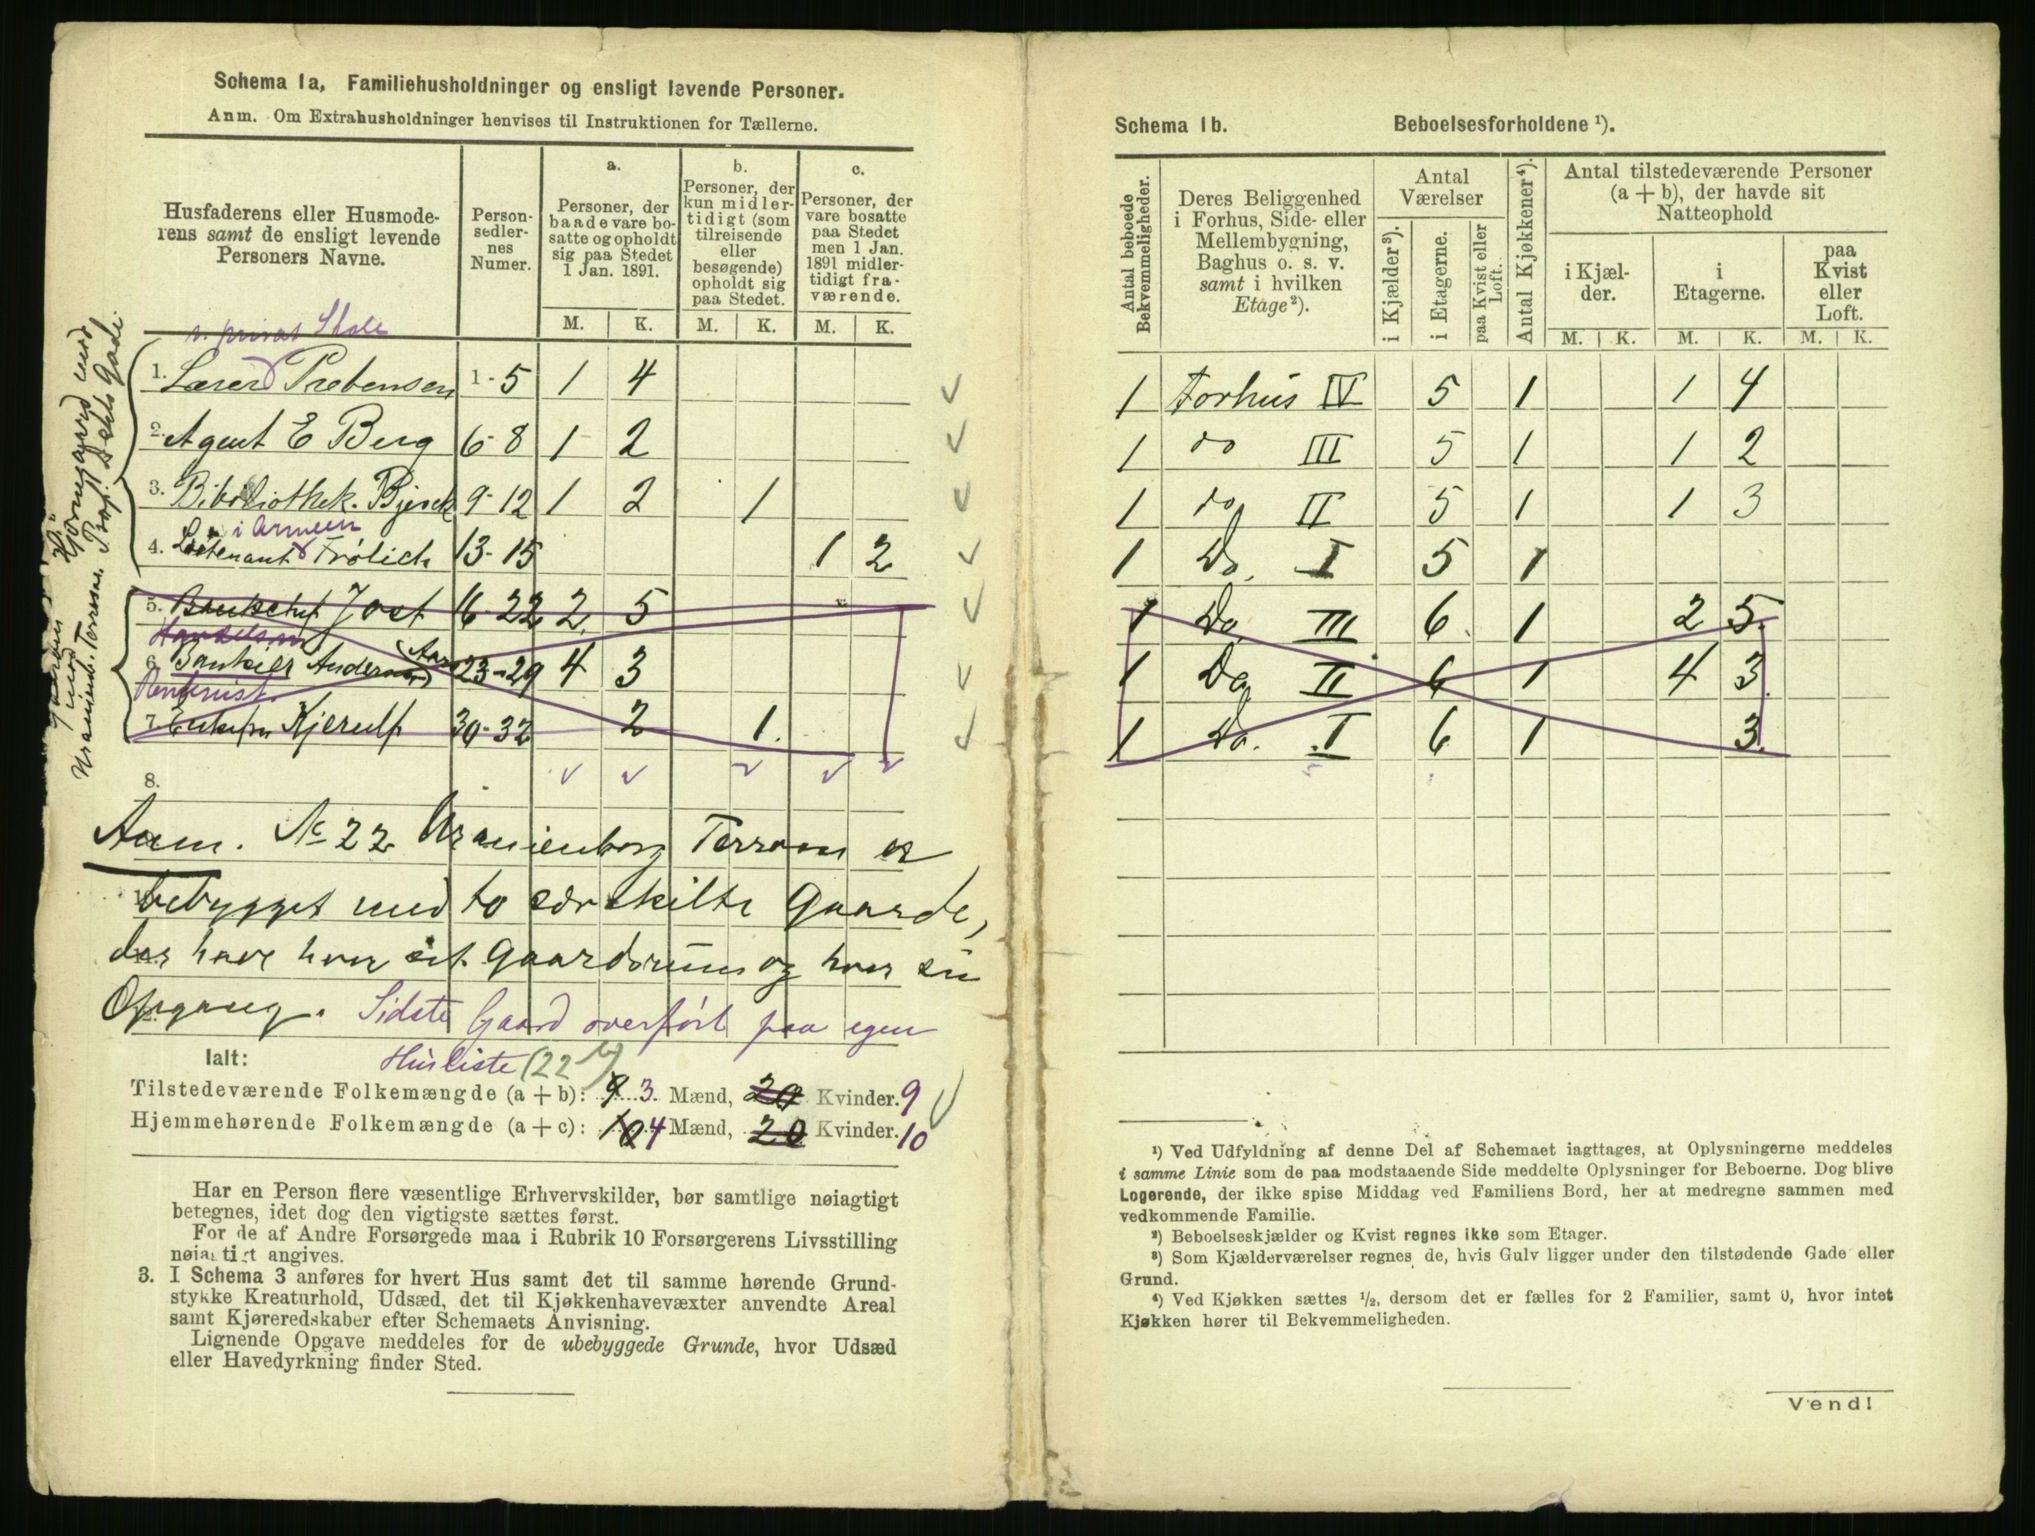 Schema 1a. Familiehusholdninger og ensligt levende Personer.
Anm. Om Extrahusholdninger henvises til Instruktionen for Tællerne.
Husfaderens eller Husmode-
rens samt de ensligt levende
Personers Navne.
Person-
sedler-
nes
Numer.
a.
Personer, der
baade vare bo-
satte og opholdt
sig paa Stedet
1 Jan. 1891.
b.
Personer, der
kun midler-
tidigt (som
tilreisende
eller
besøgende)
opholdt sig
paa Stedet.
c.
Personer, der
vare bosatte
paa Stedet
men 1 Jan.
1891 midler-
tidigt fra-
værende.
M. K. M. K. M. K.
v. privat Skole
1. Lærer Prebensen 1-5 1 4
2. Agent E Berg 6-8 1 2
3. Bibliothek. 9-12 1 2 1
i Armeen
4. Løitenant Frølich 13-15 1 2
5. Bankchef Jost 16-22 2 5
6. Bankier 23-29 4 3
7. Kjerulf 30-32 2 1.
8.
Anm. No 22 Uranienborg Terrasse er
bebygget med to særskilte Gaarde,
der have hver sit Gaardsrum og hver sin
Opgang. Sidste Gaard overført paa egen
Husliste (22 b)
Ialt:
Tilstedeværende Folkemængde (a + b): 9 3 Mænd, 20 Kvinder. 9
Hjemmehørende Folkemængde (a + c): 10 4 Mænd, 20 Kvinder. 10
Har en Person flere væsentlige Erhvervskilder, bør samtlige nøiagtigt
betegnes, idet dog den vigtigste sættes først.
For de af Andre Forsørgede maa i Rubrik 10 Forsørgerens Livsstilling
nøiagtigt angives.
3. I Schema 3 anføres for hvert Hus samt det til samme hørende Grund-
stykke Kreaturhold, Udsæd, det til Kjøkkenhavevæxter anvendte Areal
samt Kjøreredskaber efter Schemaets Anvisning.
Lignende Opgave meddeles for de ubebyggede Grunde, hvor Udsæd
eller Havedyrkning finder Sted.
Schema 1b. Beboelsesforholdene ¹).
Antal beboede
Bekvemmeligheder.
Deres Beliggenhed
i Forhus, Side- eller
Mellembygning,
Baghus o. s. v.
samt i hvilken
Etage²).
Antal
Værelser
i Kjælder³).
i Etagerne.
paa Kvist eller
Loft.
Antal Kjøkkener⁴).
Antal tilstedeværende Personer
(a + b), der havde sit
Natteophold
i Kjæl-
der.
i
Etagerne.
paa
Kvist
eller
Loft.
M. K. M. K. M. K.
1 Forhus IV 5 1 1 4
1 do III 5 1 1 2
1 do II 5 1 1 3
1 Do. I 5 1
1 Do. III 6 1 2 5.
1 Do. II 6 1 4 3.
1 Do. I 6 1 3.
¹) Ved Udfyldning af denne Del af Schemaet iagttages, at Oplysningerne meddeles
i samme Linie som de paa modstaaende Side meddelte Oplysninger for Beboerne. Dog blive
Logerende, der ikke spise Middag ved Familiens Bord, her at medregne sammen med
vedkommende Familie.
²) Beboelseskjælder og Kvist regnes ikke som Etager.
³) Som Kjælderværelser regnes de, hvis Gulv ligger under den tilstødende Gade eller
Grund.
⁴) Ved Kjøkken sættes ½, dersom det er fælles for 2 Familier, samt 0, hvor intet
Kjøkken hører til Bekvemmeligheden.
Vend!